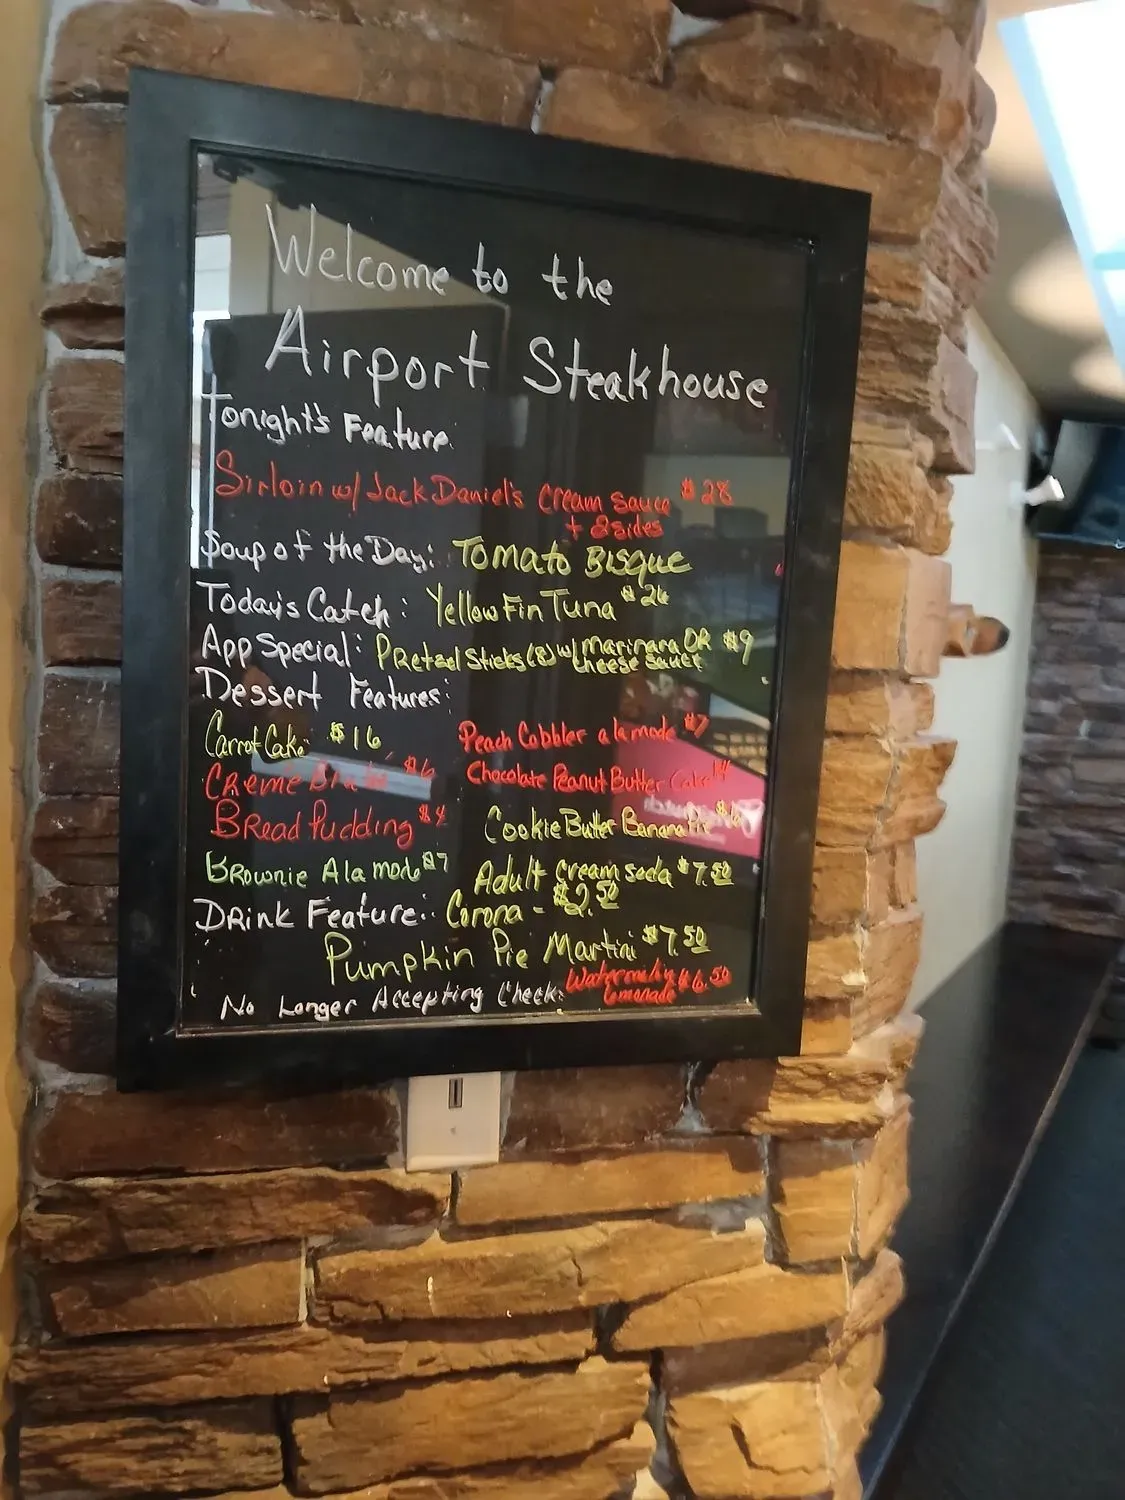 Welcome to the
Airport Steakhouse
Tonight's Feature:
Sirloin w/ Jack Daniel's Cream Sauce $28
+ 2 sides
Soup of the Day: Tomato Bisque
Today's Catch: Yellow Fin Tuna $26
App Special: Pretzel Sticks (8) w/ Marinara OR $9
cheese sauce
Dessert Features:
Carrot Cake $16 Peach Cobbler a la mode $7
Creme $6 Chocolate Peanut Butter Cake
Bread Pudding $4 Cookie Butter Banana Pie
Brownie Ala mode $7 Adult cream soda $7.50
Drink Feature: Corona - $2.50
Pumpkin Pie Martini $7.50
No Longer Accepting Check: $6.50
Lemonade